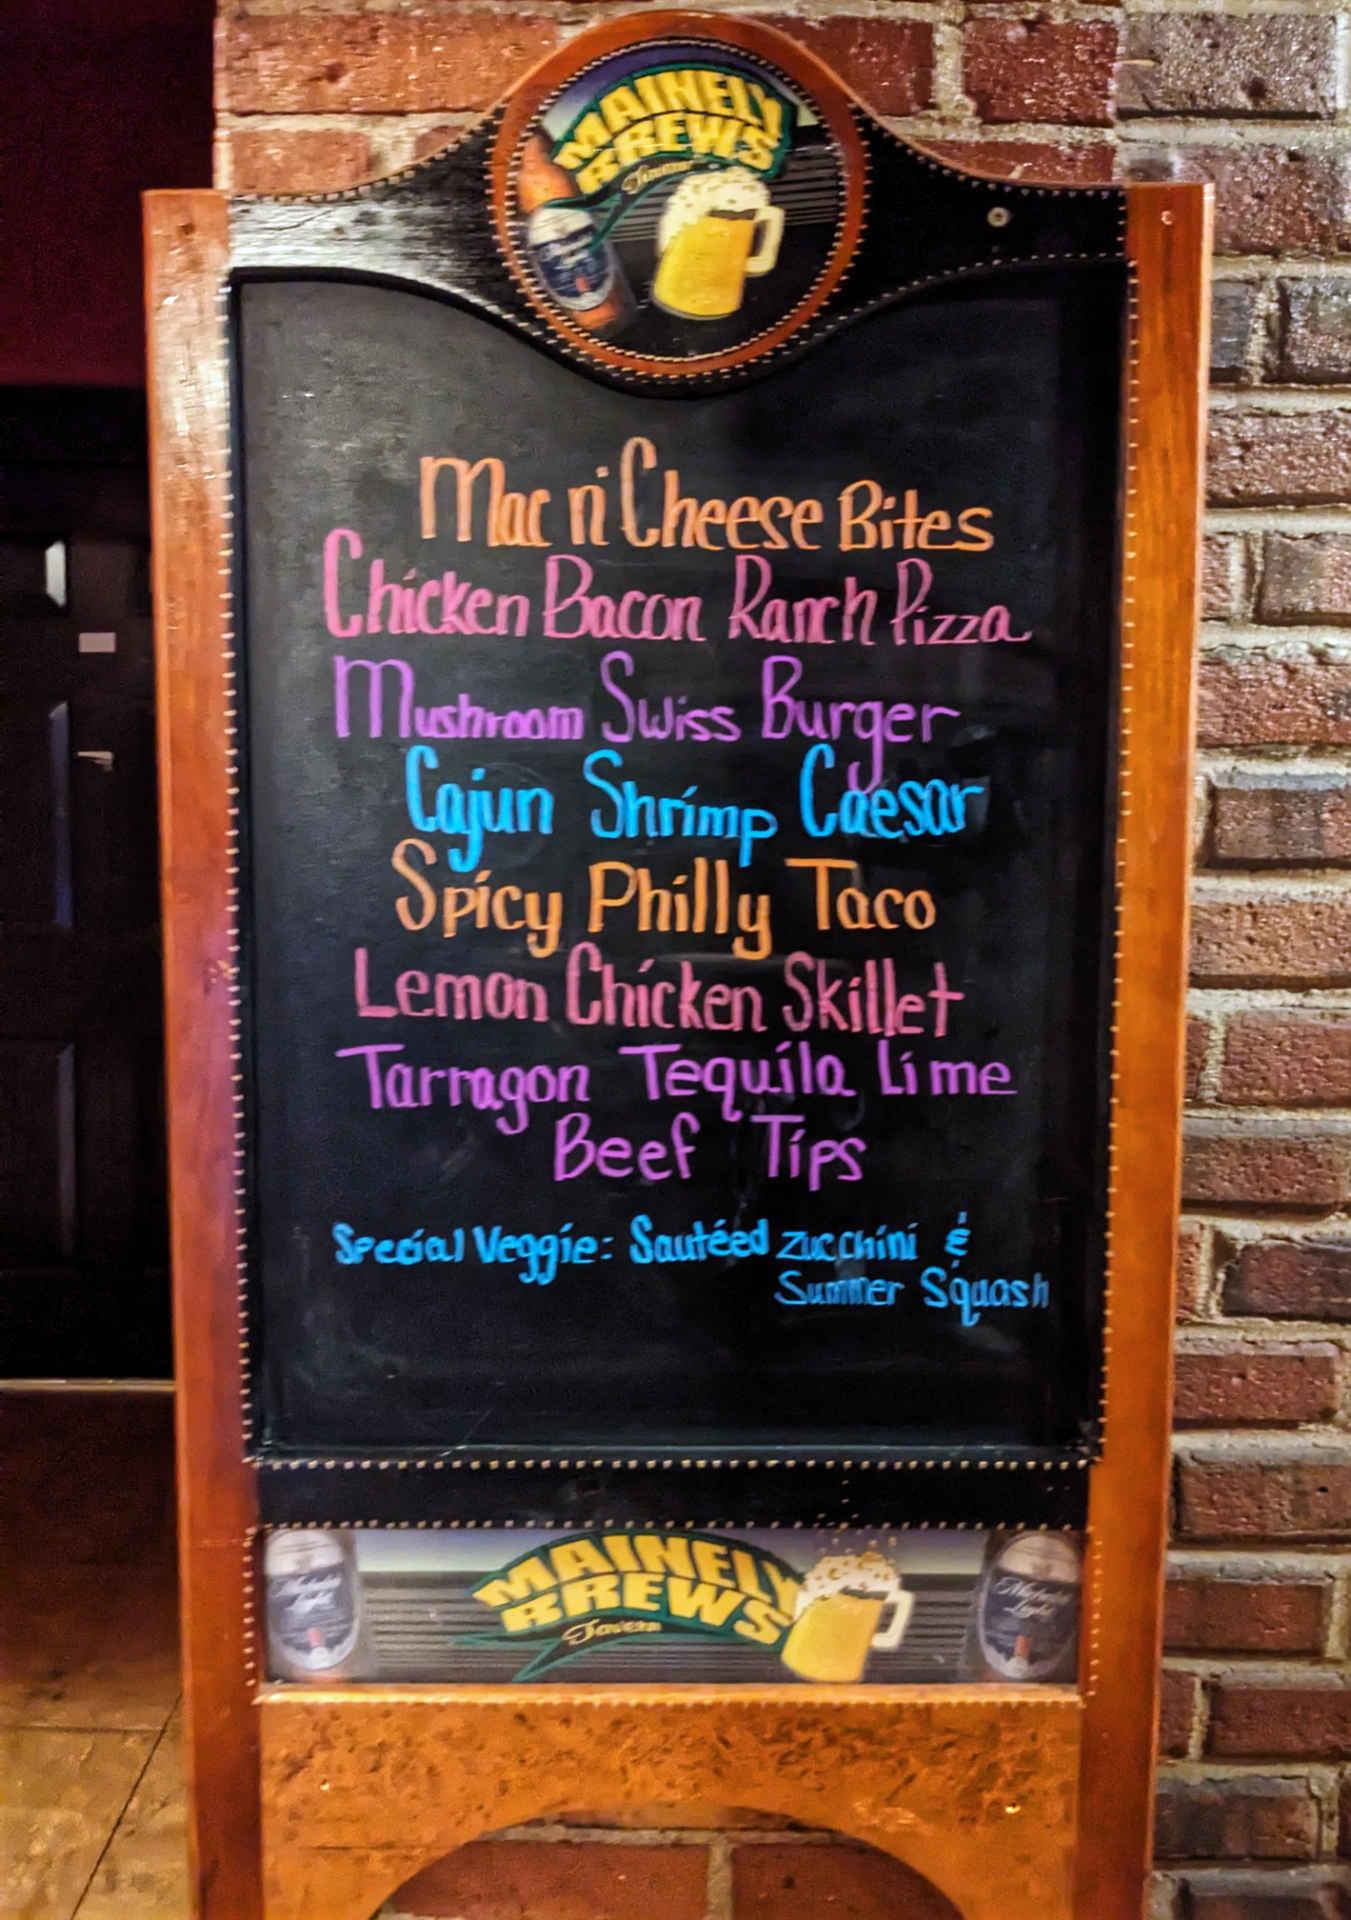 MAINELY
BREWS
Tavern
Mac n' Cheese Bites
Chicken Bacon Ranch Pizza
Mushroom Swiss Burger
Cajun Shrimp Caesar
Spicy Philly Taco
Lemon Chicken Skillet
Tarragon Tequila Lime
Beef Tips
Special Veggie: Sautéed Zucchini &
Summer Squash
MAINELY
BREWS
Tavern
Michelob
Light